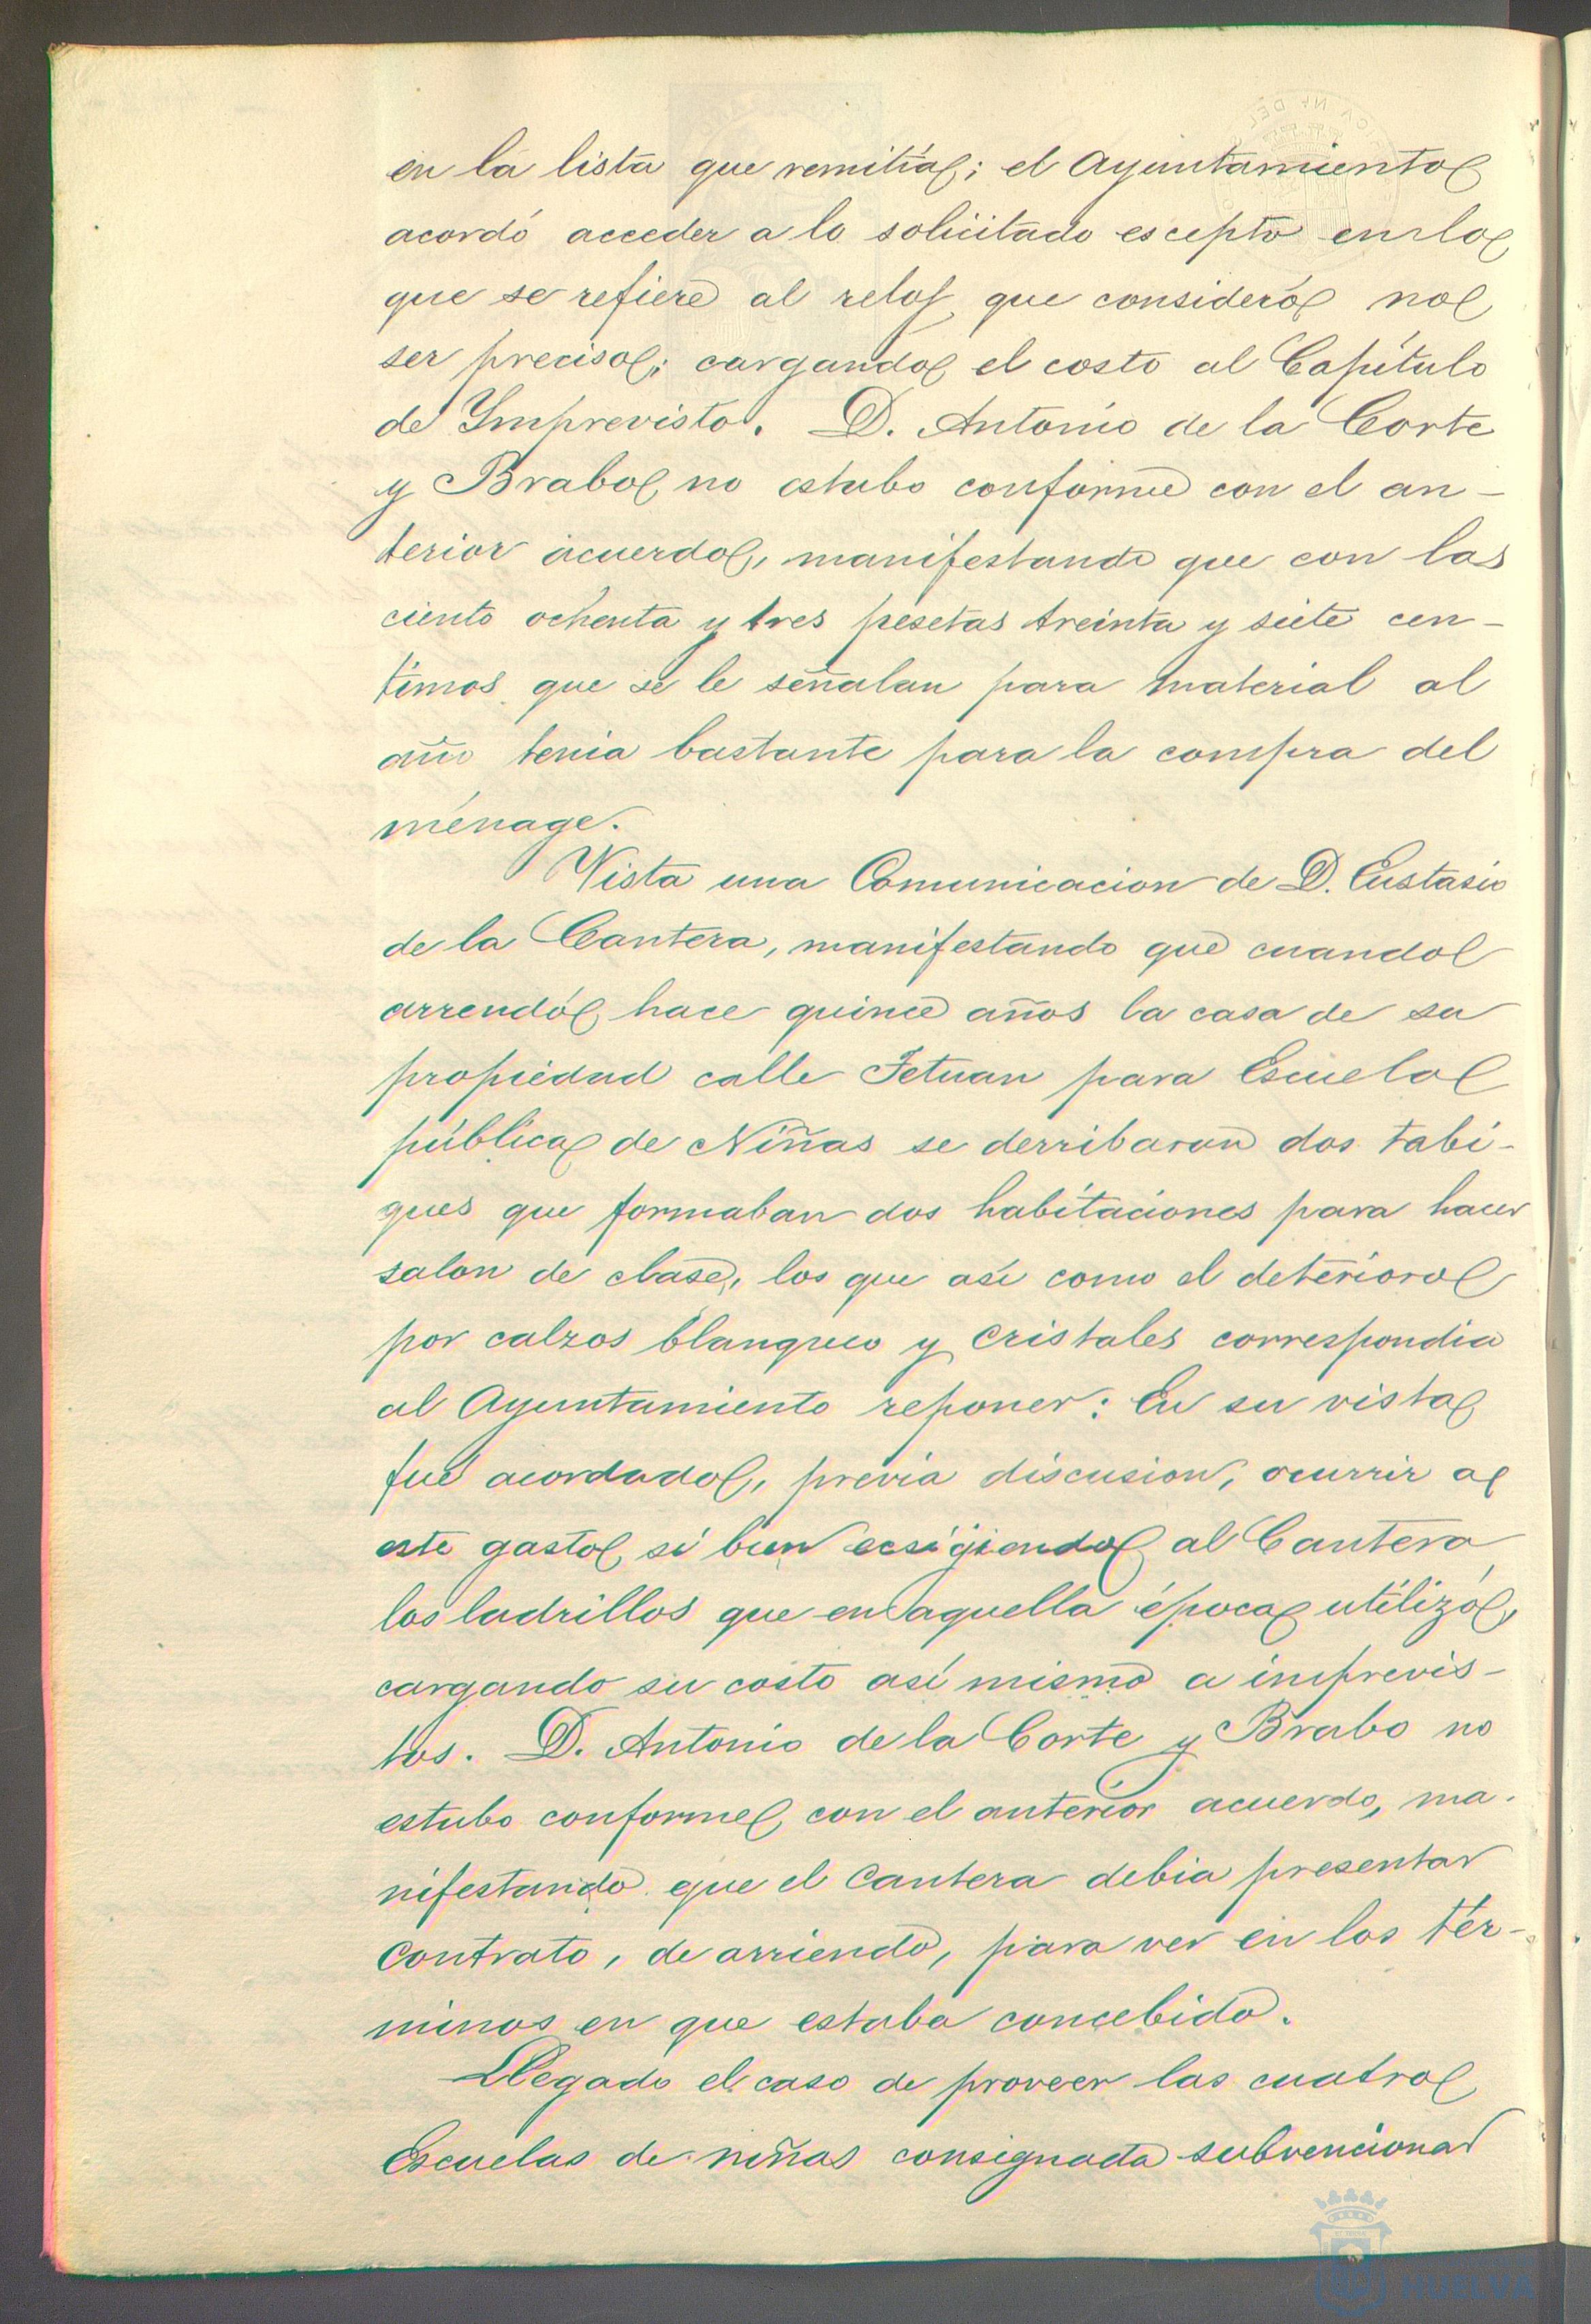 en la lista que remitía; el Ayuntamiento
acordó acceder a lo solicitado escepto en lo
que se refiere al reloj que consideró no
ser preciso; cargando el costo al Capítulo
de Ymprevisto. D. Antonio de la Corte
y Brabo no estubo conforme con el an-
terior acuerdo, manifestando que con las
ciento ochenta y tres pesetas treinta y siete cen-
timos que se le señalan para material al
año tenia bastante para la compra del
ménage.
Vista una Comunicacion de D. Eustasio
de la Cantera, manifestando que cuando
arrendó hace quince años la casa de su
propiedad calle Tetuan para Escuela
pública de Niñas se derribaron dos tabi-
ques que formaban dos habitaciones para hacer
salon de clase, los que así como el deterioro
por calzos blanqueo y cristales correspondia
al Ayuntamiento reponer: En su vista
fué acordado, previa discusion, ocurrir a
este gasto si bien ecsigiendo al Cantera
los ladrillos que en aquella época utilizó,
cargando su costo así mismo a imprevis-
tos. D. Antonio de la Corte y Brabo no
estubo conforme con el anterior acuerdo, ma-
nifestando que el Cantera debia presentar
contrato, de arriendo, para ver en los tér-
minos en que estaba concebido.
Llegado el caso de proveer las cuatro
Escuelas de niñas consignada subvencionar
HUELVA